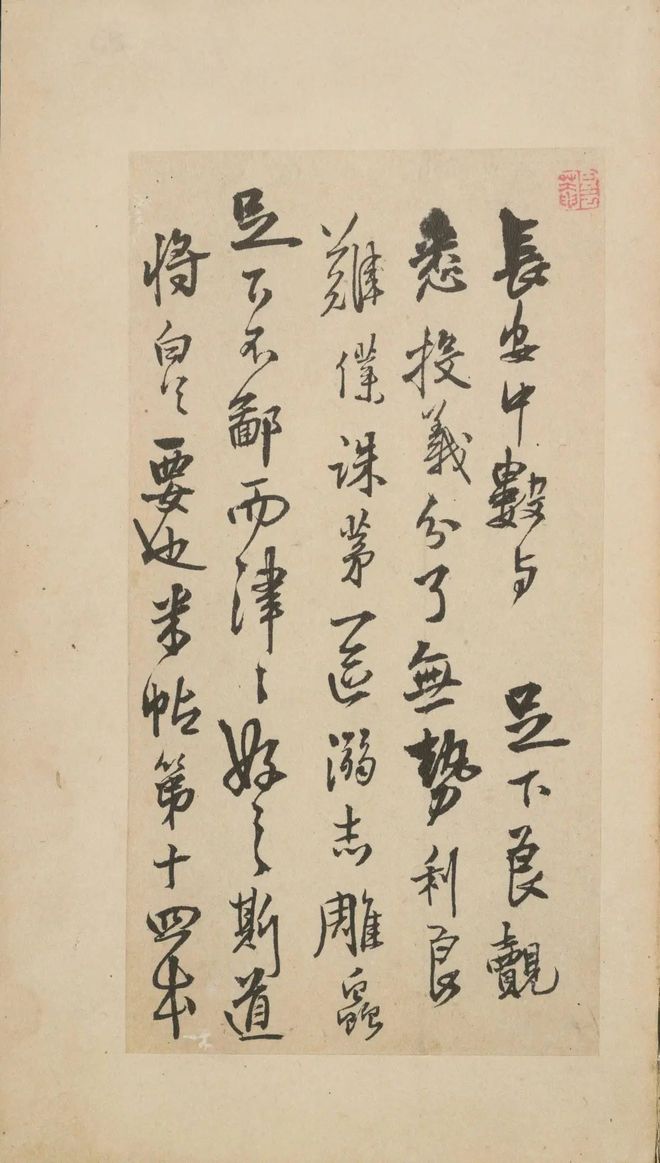 長安中數与 足下良覿
悉投義分了無勢利良
難僕誅茅一區溺志雕蟲
足下不鄙而津々好之斯道
將白之要也米帖第十四本